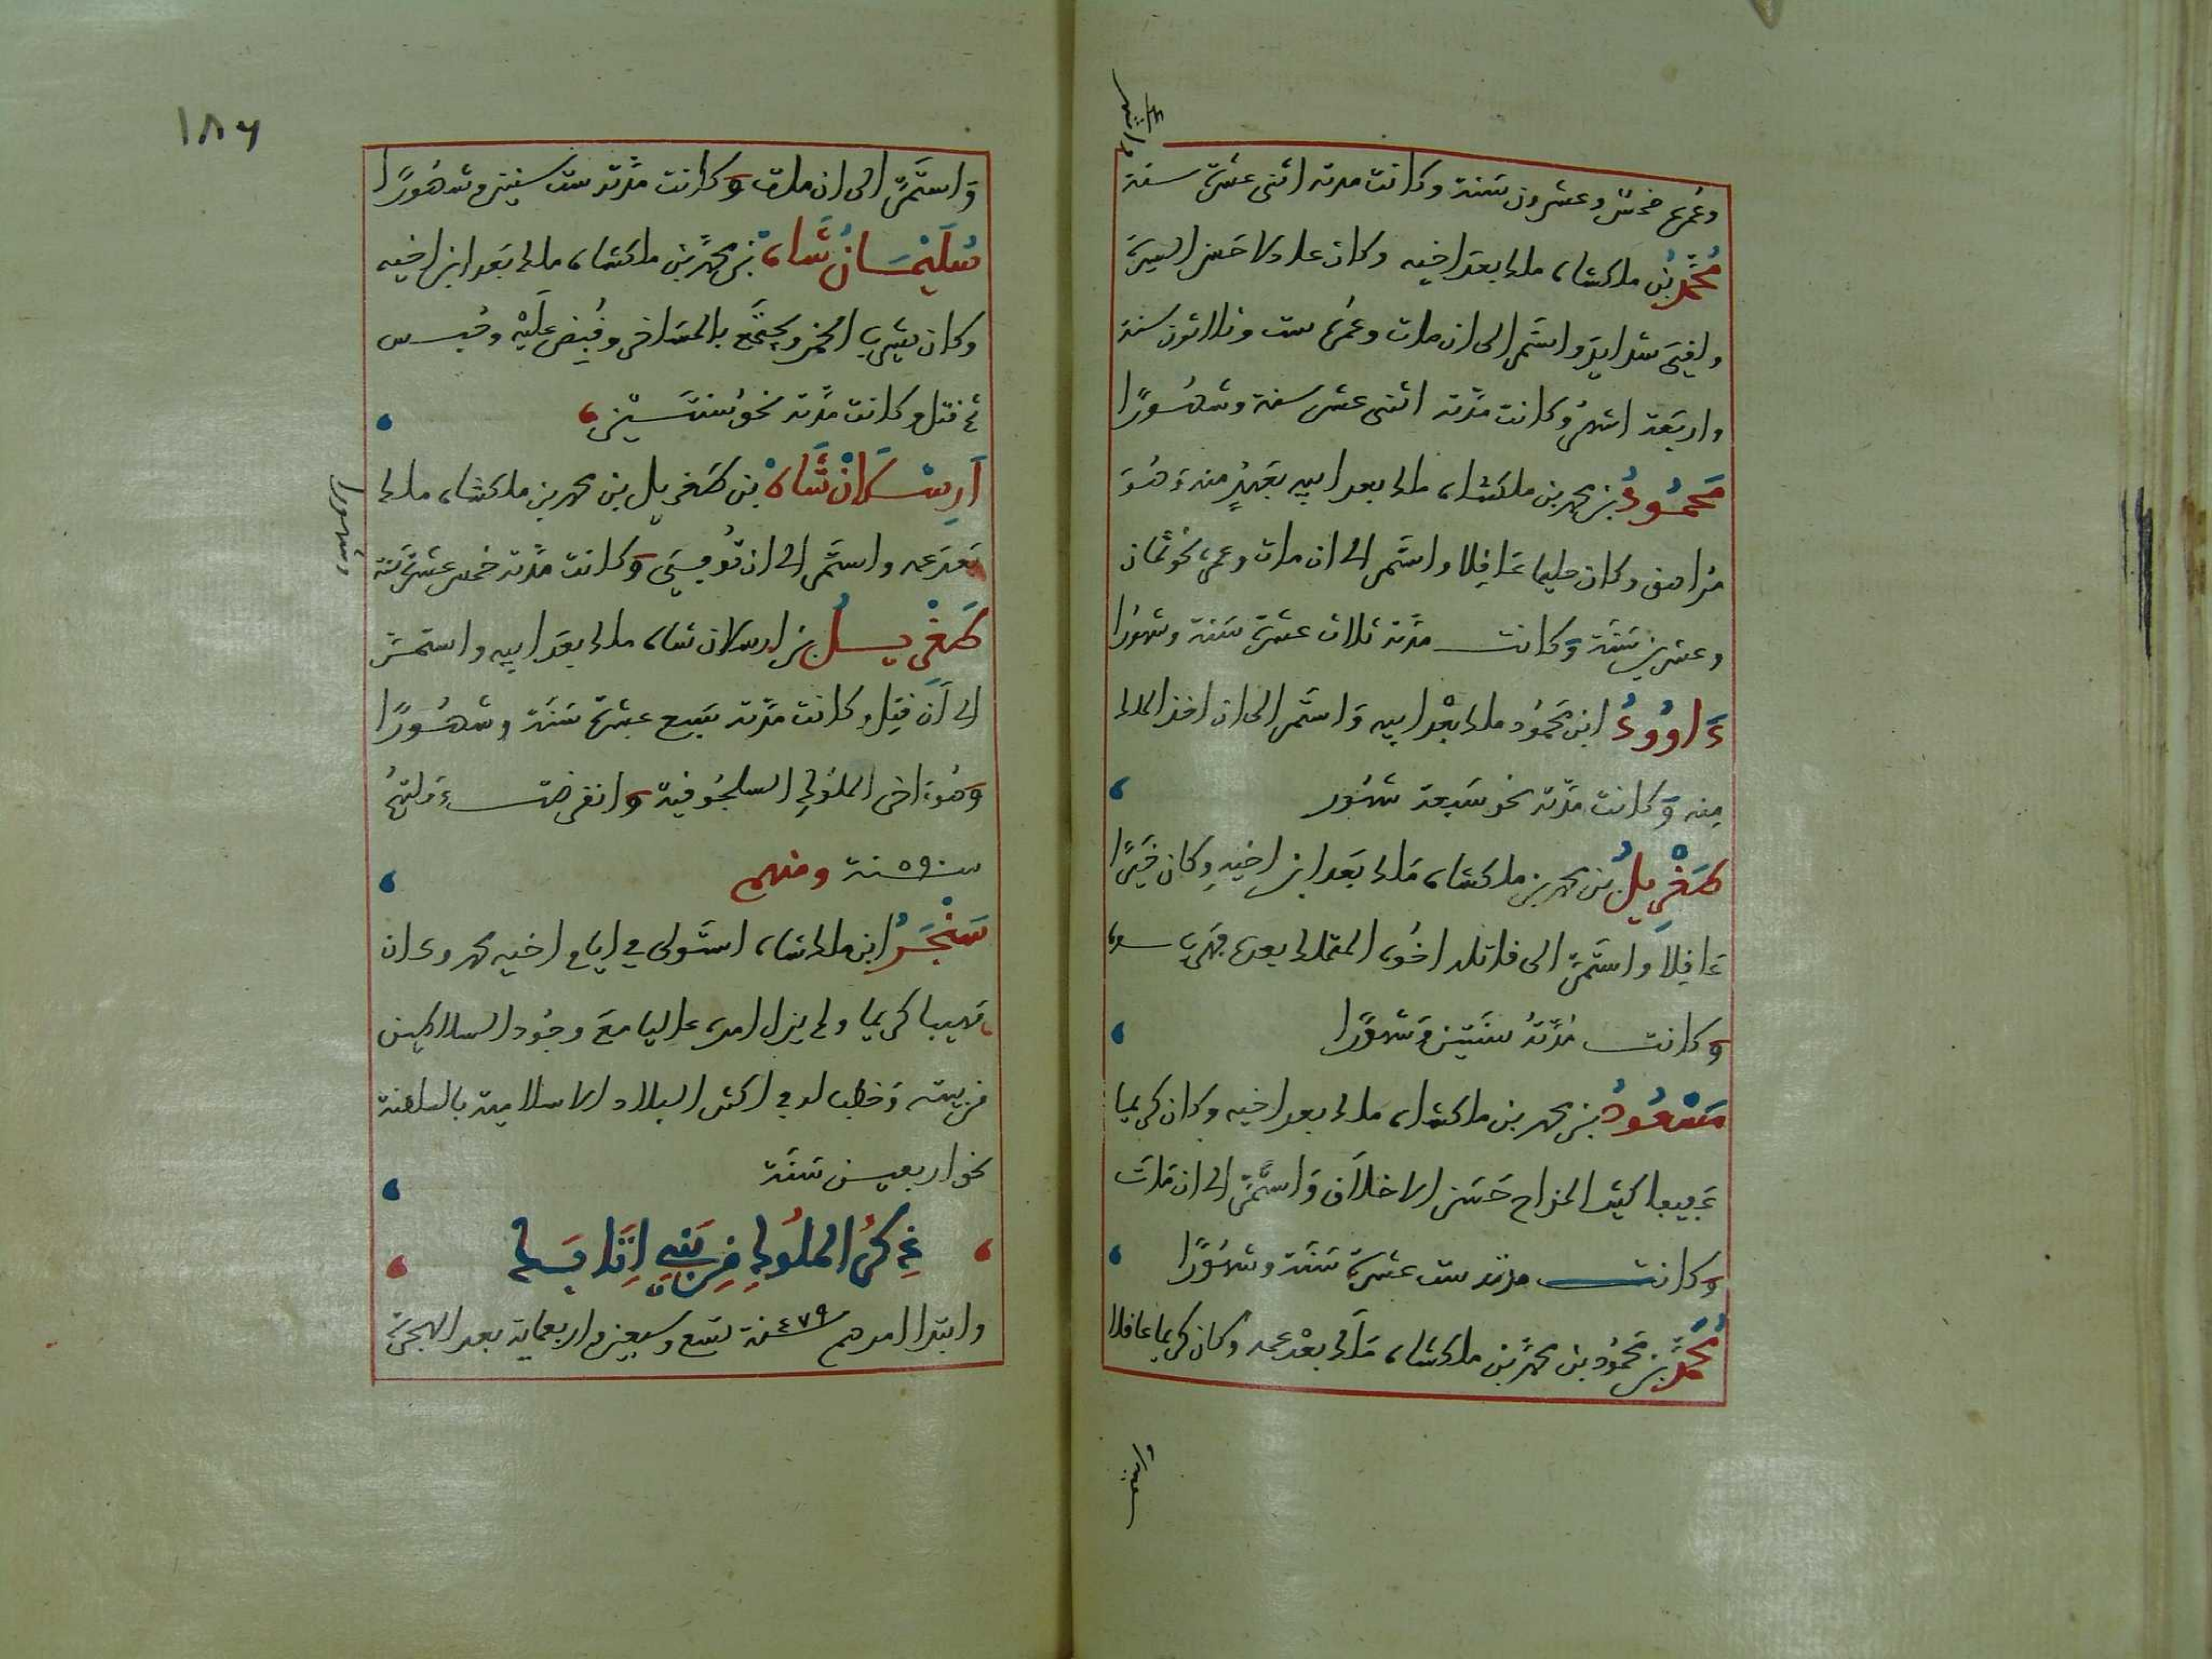 وعمره خمس وعشرون سنة وكانت مدته اثنى عشرة سنة
مُحَمَّدُ بْنُ ملكشاه ملك بعد اخيه وكان عادلا حسن السيرة
ولقي شدايد واستمر الى ان مات وعمره ست وثلاثون سنة
واربعة اشهر وكانت مدته اثنى عشر سنة وشهورًا
مَحْمُودُ بن محمد بن ملكشاه ملك بعد ابيه بعهدٍ منه وهو
مراهق وكان حليما عاقلا واستمر الى ان مات وعمره نحو ثمان
وعشرين سنة وكانت مدته ثلاث عشرة سنة وشهورًا
دَاوُودُ ابن محمود ملك بعد ابيه واستمر الى ان اخذ الملك
منه وكانت مدته نحو سبعة شهور
طَغْرِيلُ بن محمد بن ملكشاه ملك بعد ابن اخيه وكان خيرًا
عاقلا واستمر الى قاتله اخوه المتملك بعده
وكانت مُدَّتُه سنتين وشهورًا
مَسْعُودُ بن محمد بن ملكشاه ملك بعد اخيه وكان كريما
عجيبا كثير المزاح حسن الاخلاق واستمر الى ان مات
وكانت مدته ست عشرة سنة وشهورًا
مُحَمَّدُ بن محمود بن محمد بن ملكشاه ملك بعد عمه وكان كريما عاقلا
١٨٦
واستمر الى ان مات وكانت مدته ست سنين وشهورًا
سُلَيْمَانُ شَاه بن محمد بن ملكشاه ملك بعد ابن اخيه
وكان يشرب الخمر ويجتمع بالمساخر وقُبِض عَلَيْه وحُبس
ثم قتل وكانت مدته نحو سنتين
اَرِسْلَانْ شَاهْ بن طغريل بن محمد بن ملكشاه ملك
بعد عمه واستمر الى ان توفي وكانت مدته خمس عشرة سنة
وشهورا
طَغْرِيلُ بن ارسلان شاه ملك بعد ابيه واستمر
الى ان قتل وكانت مدته سبع عشرة سنة وشهورًا
وهو اخر الملوك السلجوقية وانقرضت دولتهم
سنة ٥٩٠ ومنهم
سَنْجَرُ ابن ملكشاه استولى في ايام اخيه محمد وكان
مهيبا كريما ولم يزل امره عاليا مع وجود السلاطين
من بيته وخطب له في اكثر البلاد الاسلامية بالسلطنة
نحو اربعين سنة
ذِكْرُ الملُوكِ مِنْ بَنِي اتَابَك
وابتدا امرهم سنة ٤٧٩ تسع وسبعين واربعماية بعد الهجرة